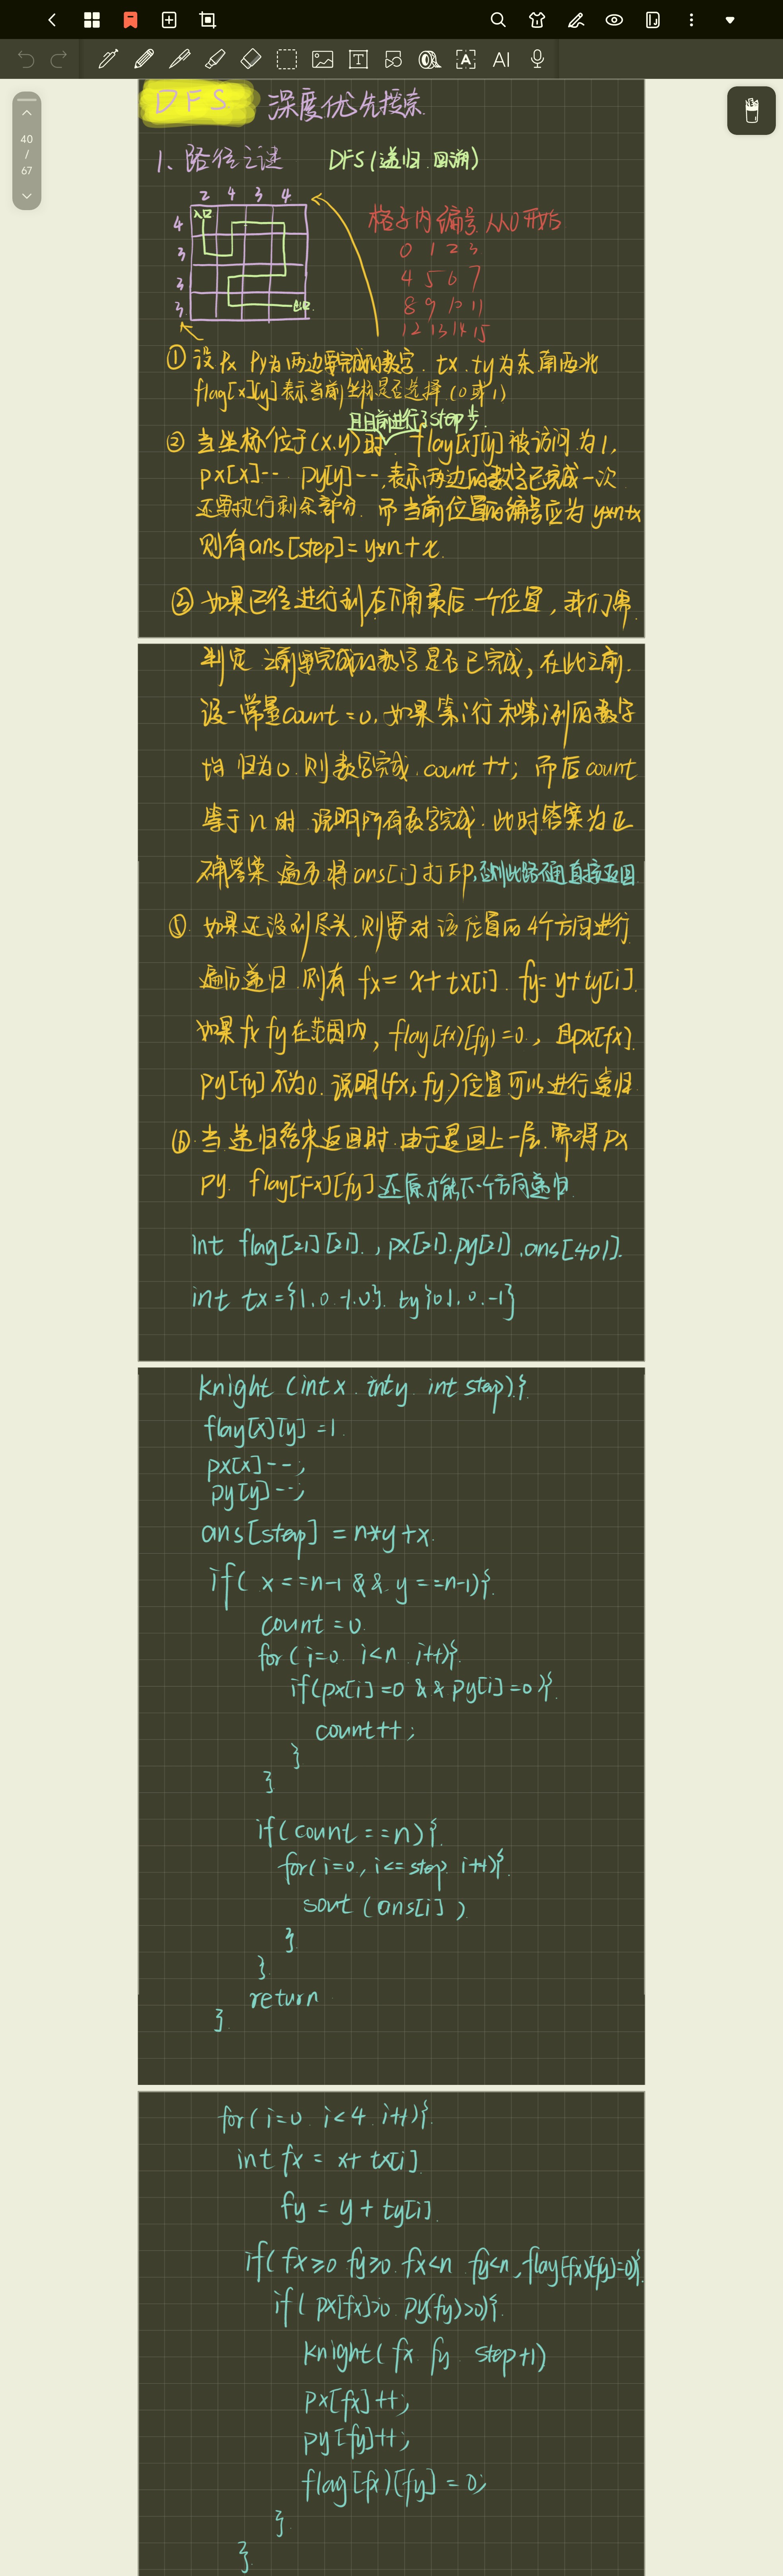 40
/
67
AI
DFS 深度优先搜索.
1. 路径之谜 DFS(递归.回溯)
2 4 3 4
4
3
3
3
入口
出口
格子内编号从0开始
0 1 2 3
4 5 6 7
8 9 10 11
12 13 14 15
① 设 px py 为两边要完成的数字. tx. ty 为东南西北
flag[x][y] 表示当前坐标是否选择 (0或1)
且目前进行了step步.
② 当坐标位于(x.y)时. flag[x][y] 被访问为1,
px[x]-- py[y]--,表示两边的数字已完成一次
还要执行剩余部分. 而当前位置的编号应为 y*n+x
则有ans[step]= y*n+x.
③ 如果已经进行到右下角最后一个位置, 我们需.
判定 之前要完成的数字是否已完成, 在此之前.
设一常量count=0. 如果第i行和第i列的数字
均归为0.则数字完成. count++; 而后count
等于n时.说明所有数字完成.此时答案为正
确答案 遍历将ans[i]打印,否则此路不通直接返回
⑤ 如果还没到尽头.则要对该位置的4个方向进行
遍历递归.则有 fx= x+tx[i]. fy= y+ty[i].
如果fx fy在范围内, flag[fx][fy]=0., 且px[fx].
py[fy]不为0.说明(fx, fy)位置可以进行递归
⑥ 当递归结束返回时.由于退回上一层.需将px
py. flag[fx][fy] 还原才能下个方向递归.
int flag[21][21]., px[21].py[21].ans[401].
int tx={1.0.-1.0}. ty{0.1.0.-1}
knight (int x. int y. int step).{.
flag[x][y]=1.
px[x]--;
py[y]--;
ans[step] = n*y+x.
if( x==n-1 && y==n-1){.
count=0.
for(i=0. i<n i++){.
if(px[i]=0 && py[i]=0){.
count++;
}
}
if(count==n){.
for(i=0, i<=step. i++){.
sout (ans[i])
}.
}.
return
}.
for(i=0. i<4. i++){.
int fx = x+tx[i].
fy = y+ty[i].
if( fx≥0 fy≥0. fx<n. fy<n, flag[fx][fy]=0){.
if( px[fx]>0. py(fy)>0){.
knight( fx. fy. step+1)
px[fx]++;
py[fy]++;
flag[fx][fy] = 0;
}
}.